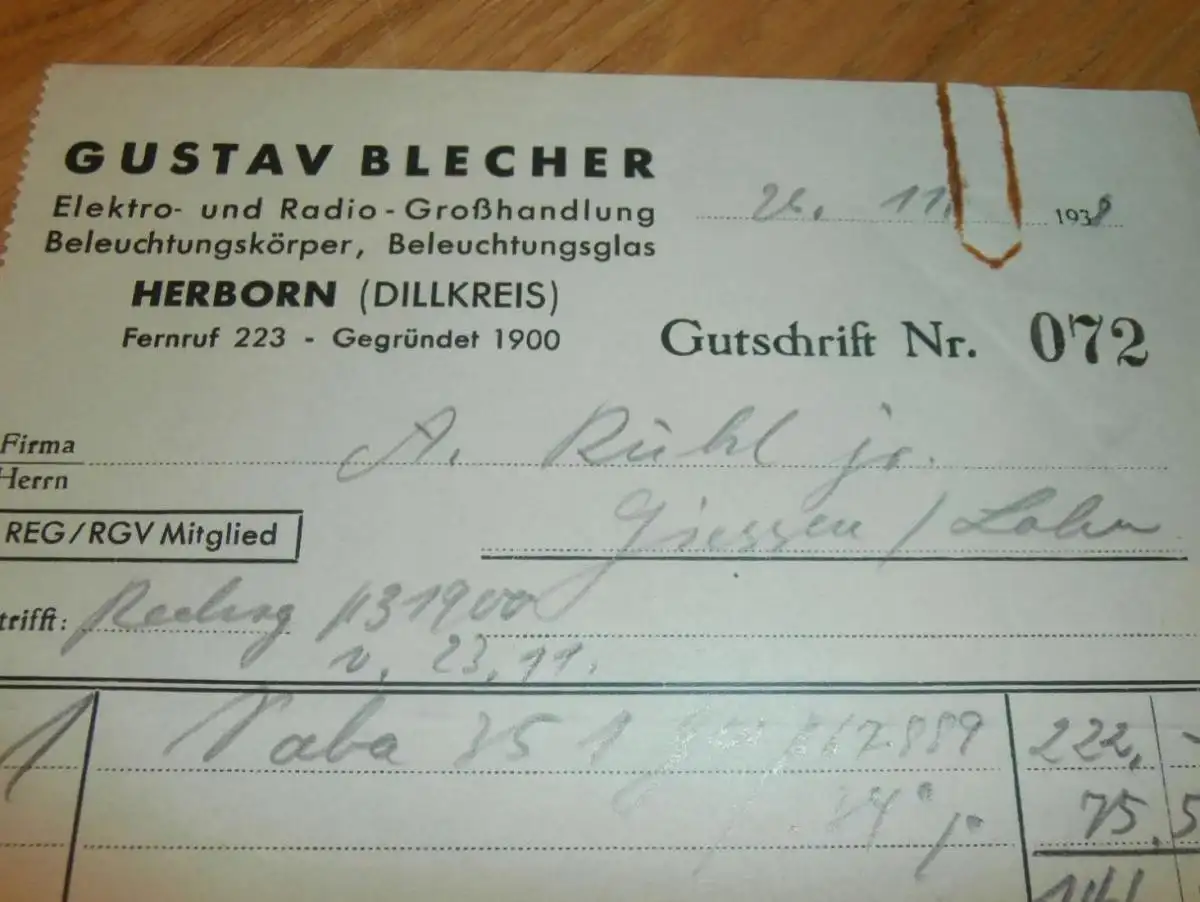 GUSTAV BLECHER
Elektro- und Radio-Großhandlung
Beleuchtungskörper, Beleuchtungsglas
HERBORN (DILLKREIS)
Fernruf 223 - Gegründet 1900
26. 11. 1938
Gutschrift Nr. 072
Firma
Herrn
A. Rühl jr.
Giessen / Lahn
REG/RGV Mitglied
trifft: Rechng 1900
v. 23.11.
1 35 1 222,-
34 % 75,5